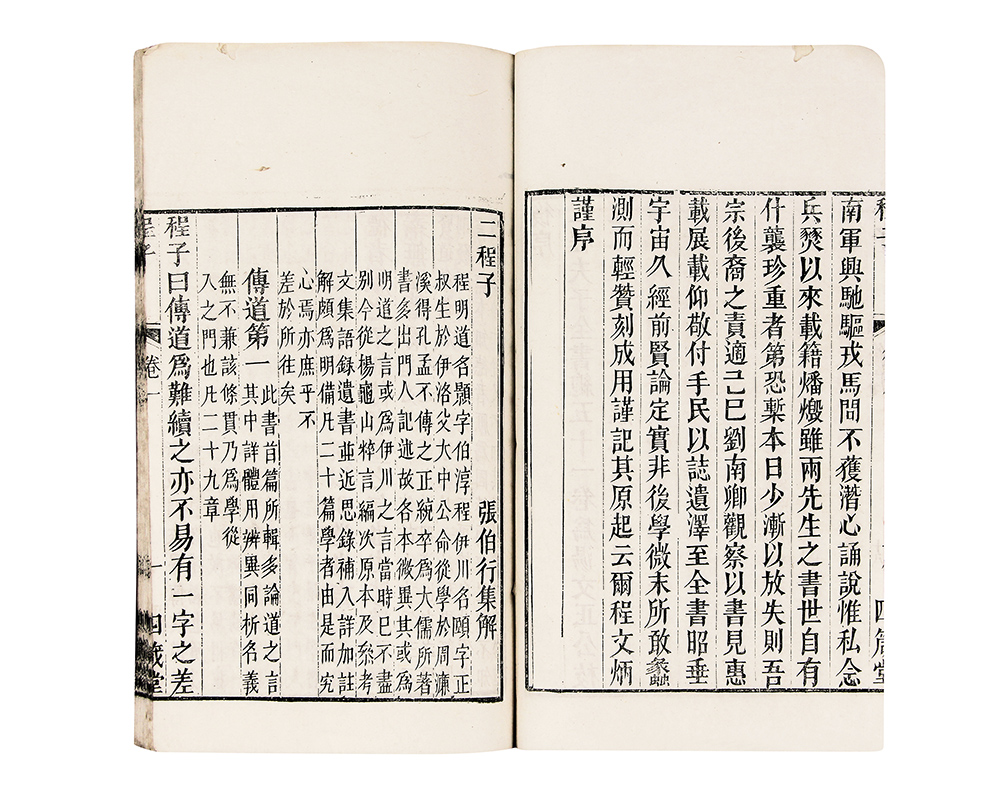 程子 四箴堂
南軍興馳驅戎馬間不獲潛心誦說惟私念
兵燹以來載籍燔燬雖兩先生之書世自有
什襲珍重者第恐槧本日少漸以放失則吾
宗後裔之責適己巳劉南卿觀察以書見惠
載展載仰敬付手民以誌遺澤至全書昭垂
宇宙久經前賢論定實非後學微末所敢蠡
測而輕贊刻成用謹記其原起云爾程文炳
謹序
二程子 張伯行集解
程明道名顥字伯淳程伊川名頤字正
叔生於伊洛父大中公命從學於周濂
溪得孔孟不傳之正統卒爲大儒所著
書多出門人記述故各本微異其或爲
明道之言或爲伊川之言當時已不盡
別今從楊龜山粹言編次原本及叅考
文集語録遺書並近思録補入詳加註
解頗爲明備凡二十篇學者由是而究
心焉亦庶乎不
差於所往矣
傳道第一 此書首篇所輯多論道之言
其中詳體用辨異同析名義
無不兼該條貫乃爲學從
入之門也凡二十九章
程子曰傳道爲難續之亦不易有一字之差
程子 卷一 一 四箴堂